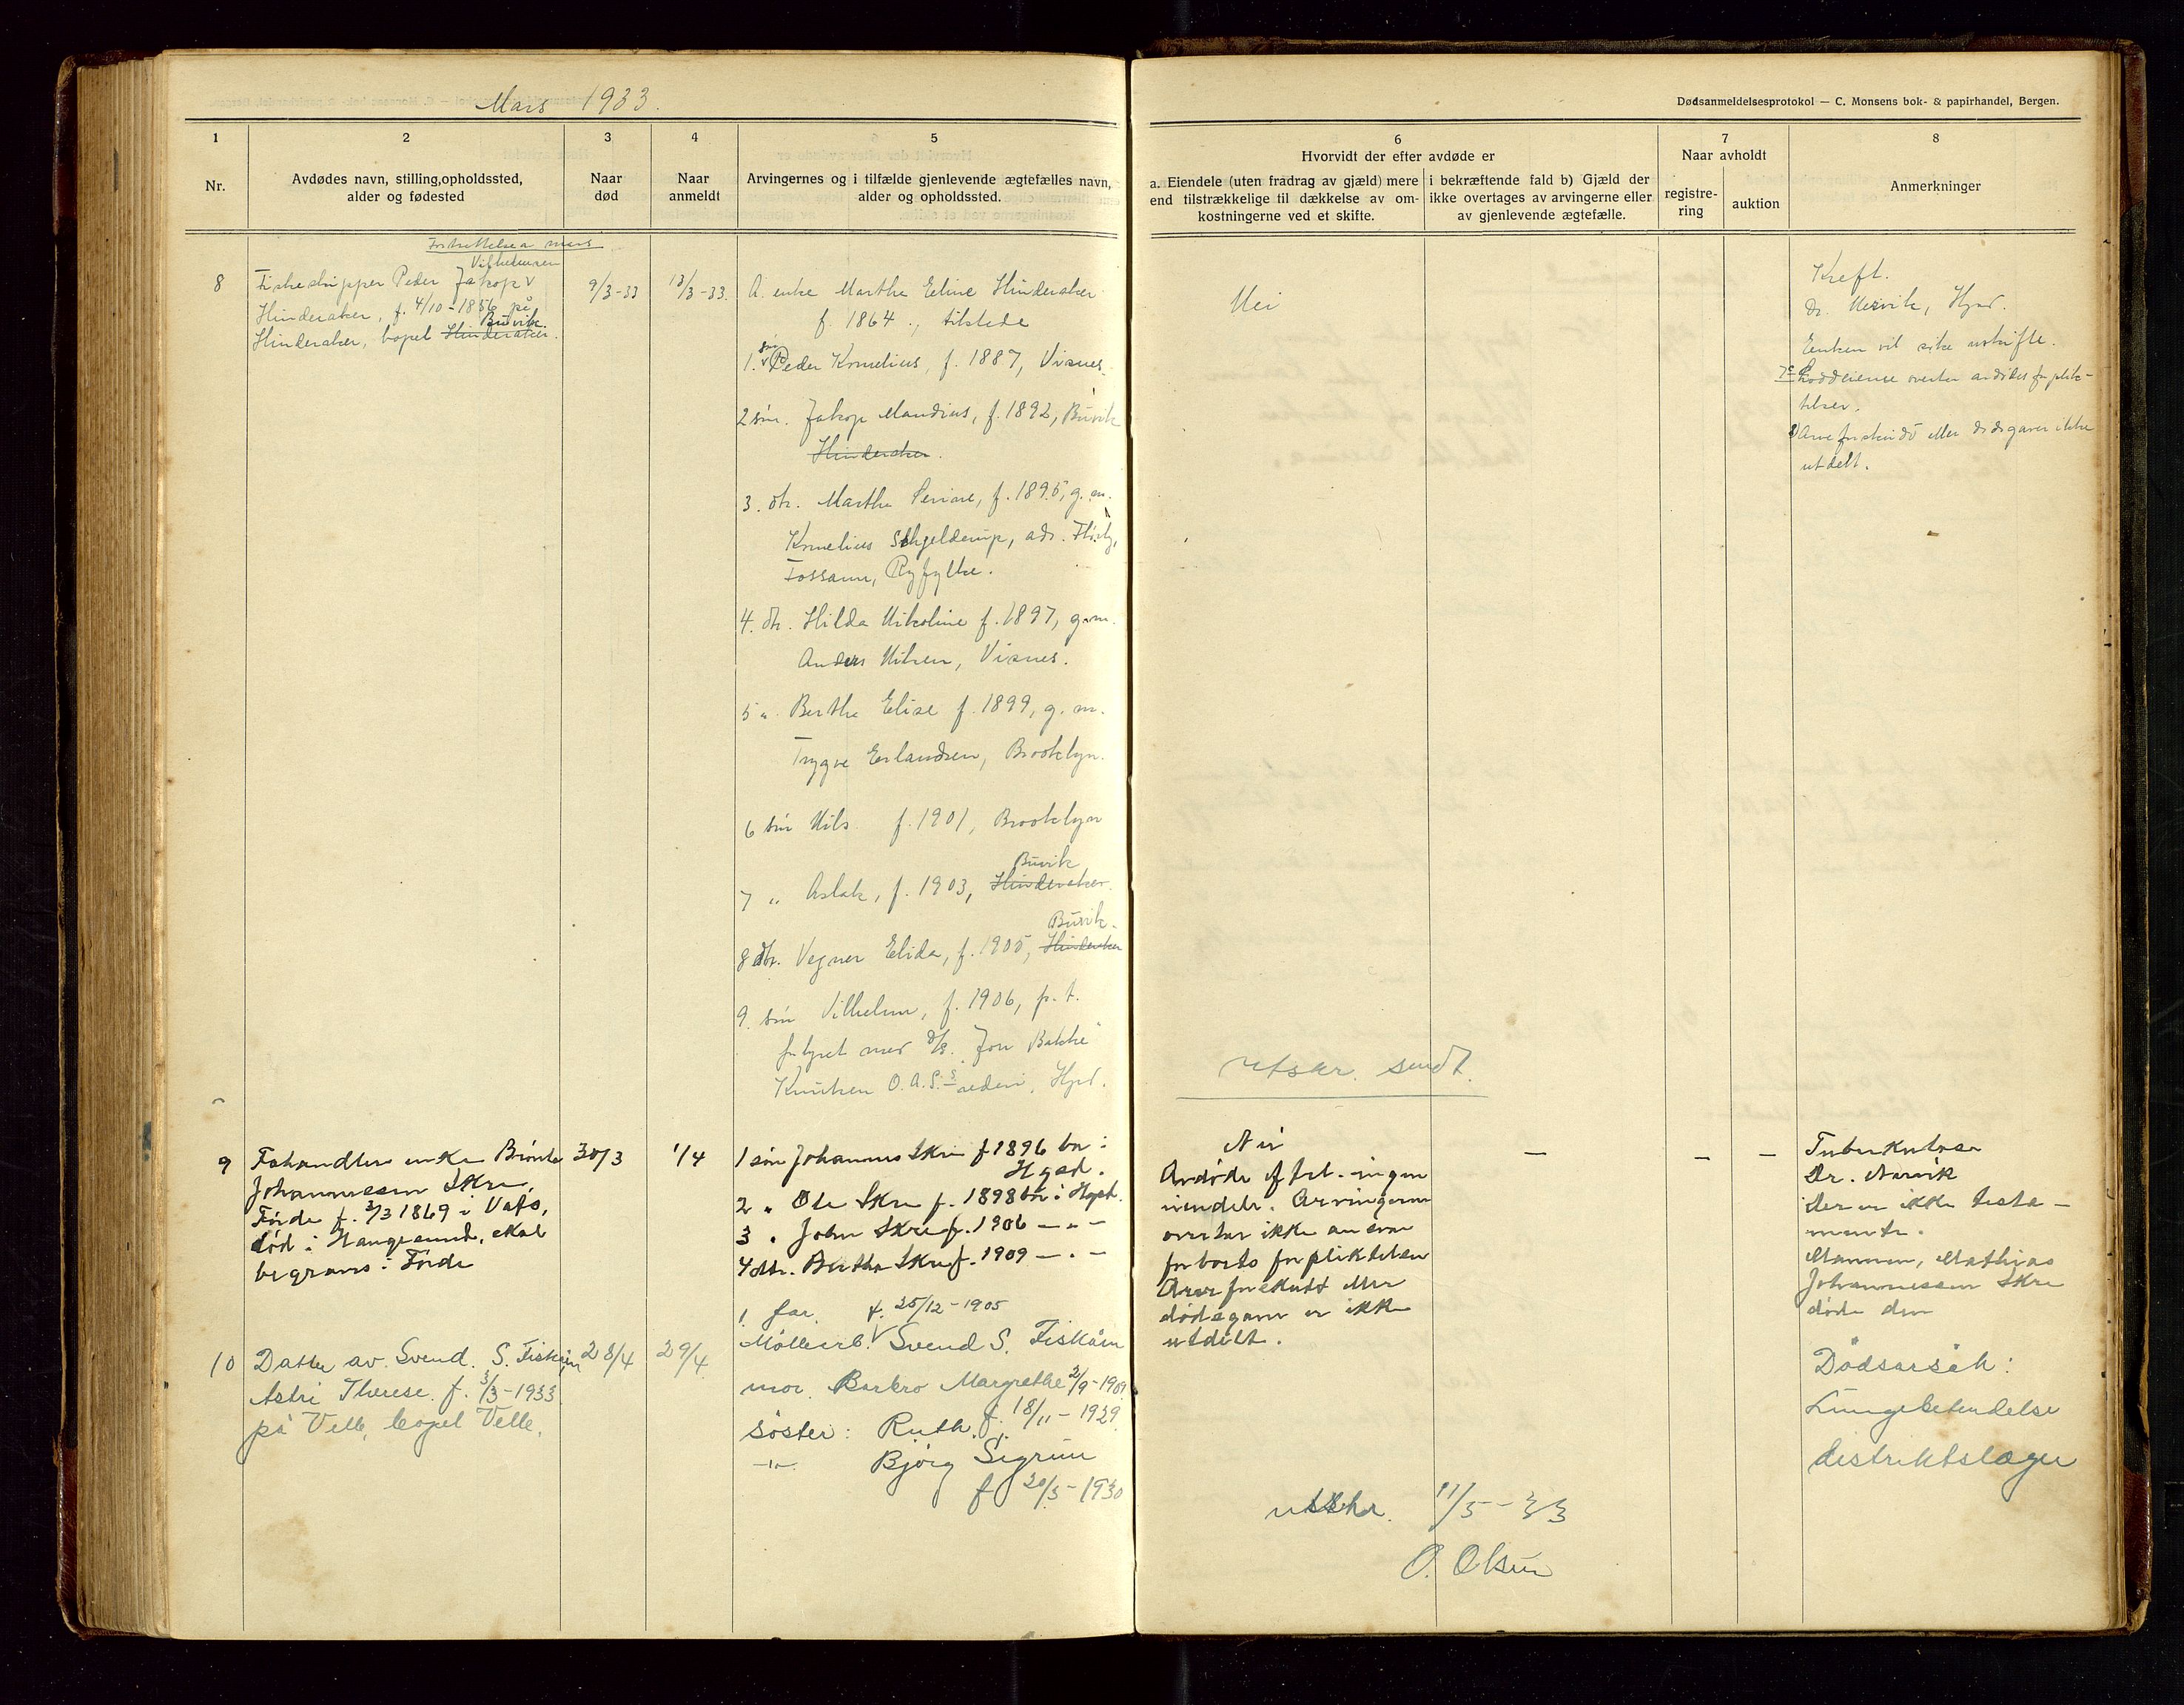 Mars 1933.
Dødsanmeldelsesprotokol — C. Monsens bok- & papirhandel, Bergen.
1
2
3
4
5
6
7
8
Nr.
Avdødes navn, stilling, opholdssted,
alder og fødested
Naar
død
Naar
anmeldt
Arvingernes og i tilfælde gjenlevende ægtefælles navn,
alder og opholdssted.
Hvorvidt der efter avdøde er
a. Eiendele (uten fradrag av gjæld) mere
end tilstrækkelige til dækkelse av om-
kostningerne ved et skifte.
i bekræftende fald b) Gjæld der
ikke overtages av arvingerne eller
av gjenlevende ægtefælle.
Naar avholdt
registre-
ring
auktion
Anmerkninger
Fortsettelse mars
8
Vilhelmsen
Fiskeskipper Peder Jakop
Hinderaker, f. 4/10-1856 på
Buvik
Hinderaker, bopel Hinderaker.
9/3-33
13/3-33.
A. enke Marthe Eline Hinderaker
f. 1864., tilstede
søn
1. Peder Kornelius, f. 1887, Visnes.
2 søn. Jakop Mandius, f. 1892, Buvik
Hinderaker.
3. dtr. Marthe Perine, f. 1895, g. m.
Kornelius Schjelderup, adr.
Fossann, Ryfylke.
4. dtr. Hilda Nikoline f. 1897, g. m.
Anders Nilsen, Visnes.
5 " Berthe Elise f. 1899, g. m.
Trygve Erlandsen, Brooklyn.
6 søn Nils f. 1901, Brooklyn
Buvik
7 " Aslak, f. 1903, Hinderaker.
Buvik.
8 dtr. Vegner Elida, f. 1905, Hinderaker
9. søn Vilhelm, f. 1906, p. t.
forhyret med D/S. Jon Bakke
Knutsen O.A.S. rederi, Hgsd.
Nei
utskr. sendt.
Kreft.
Dr. Nervik, Hgsd.
Enken vil sitte uskifte.
overtar avdødes forplik-
telser.
Arveforskudd eller dødsgaver ikke
utdelt.
9
Fehandler enke Bironte
Johannessen Skre,
Førde f. 3/3 1869 i Vats,
død i Haugesund, skal
begraves i Førde
30/3
1/4
1 søn Johannes Skre f 1896 bor i
Hgsd.
2 " Ole Skre f. 1898 bor i Hgsd.
3 " John Skre f. 1906 — " —
4 dtr. Berthe Skre f. 1909 — " —
Nei
Avdøde efterl. ingen
eiendele. Arvingerne
overtar ikke ansvar
for bortg forpliktelser
Arveforskudd eller
dødsgaver er ikke
utdelt.
—
—
—
Tuberkulose
Dr. Nervik
Der er ikke testa-
mente.
Mannen, Mathias
Johannessen Skre
døde den
10
Datter av Svend. S. Fiskåen
Astri Therese. f. 3/3-1933
på Velle, bopel Velle.
28/4
29/4.
1. far. f. 25/12-1905
Møllearb. Svend S. Fiskåen
mor. Barbro Margrethe 2/9-1909
søster: Ruth. f. 18/11-1929
—"— Bjørg Sigrun
f 20/5-1930
utskr. 11/5-33
O. Olsen
Dødsarsåk:
Lungebetendelse
distriktslæger